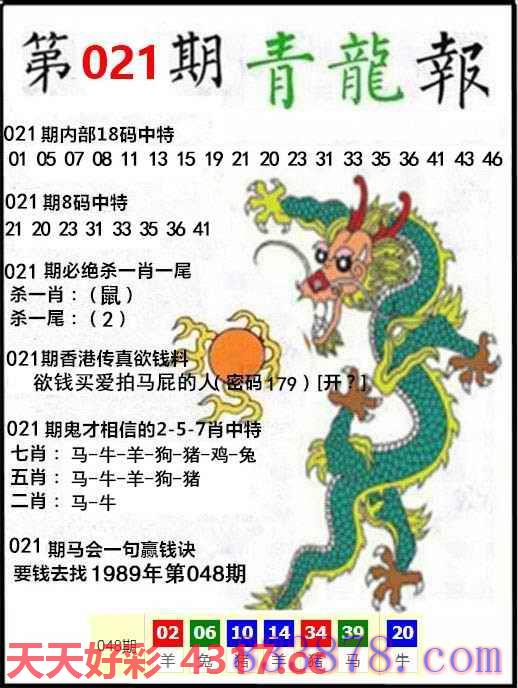 第021期青龍報
021期内部18码中特
01 05 07 08 11 13 15 19 21 20 23 31 33 35 36 41 43 46
021期8码中特
21 20 23 31 33 35 36 41
021期必绝杀一肖一尾
杀一肖：（鼠）
杀一尾：（2）
021期香港传真欲钱料
欲钱买爱拍马屁的人(密码179）[开？]
021期鬼才相信的2-5-7肖中特
七肖：马-牛-羊-狗-猪-鸡-兔
五肖：马-牛-羊-狗-猪
二肖：马-牛
021期马会一句赢钱诀
要钱去找1989年第048期
048期 02 06 10 14 34 39 20
羊 兔 猪 羊 猪 马 牛
天天好彩 4317.cc